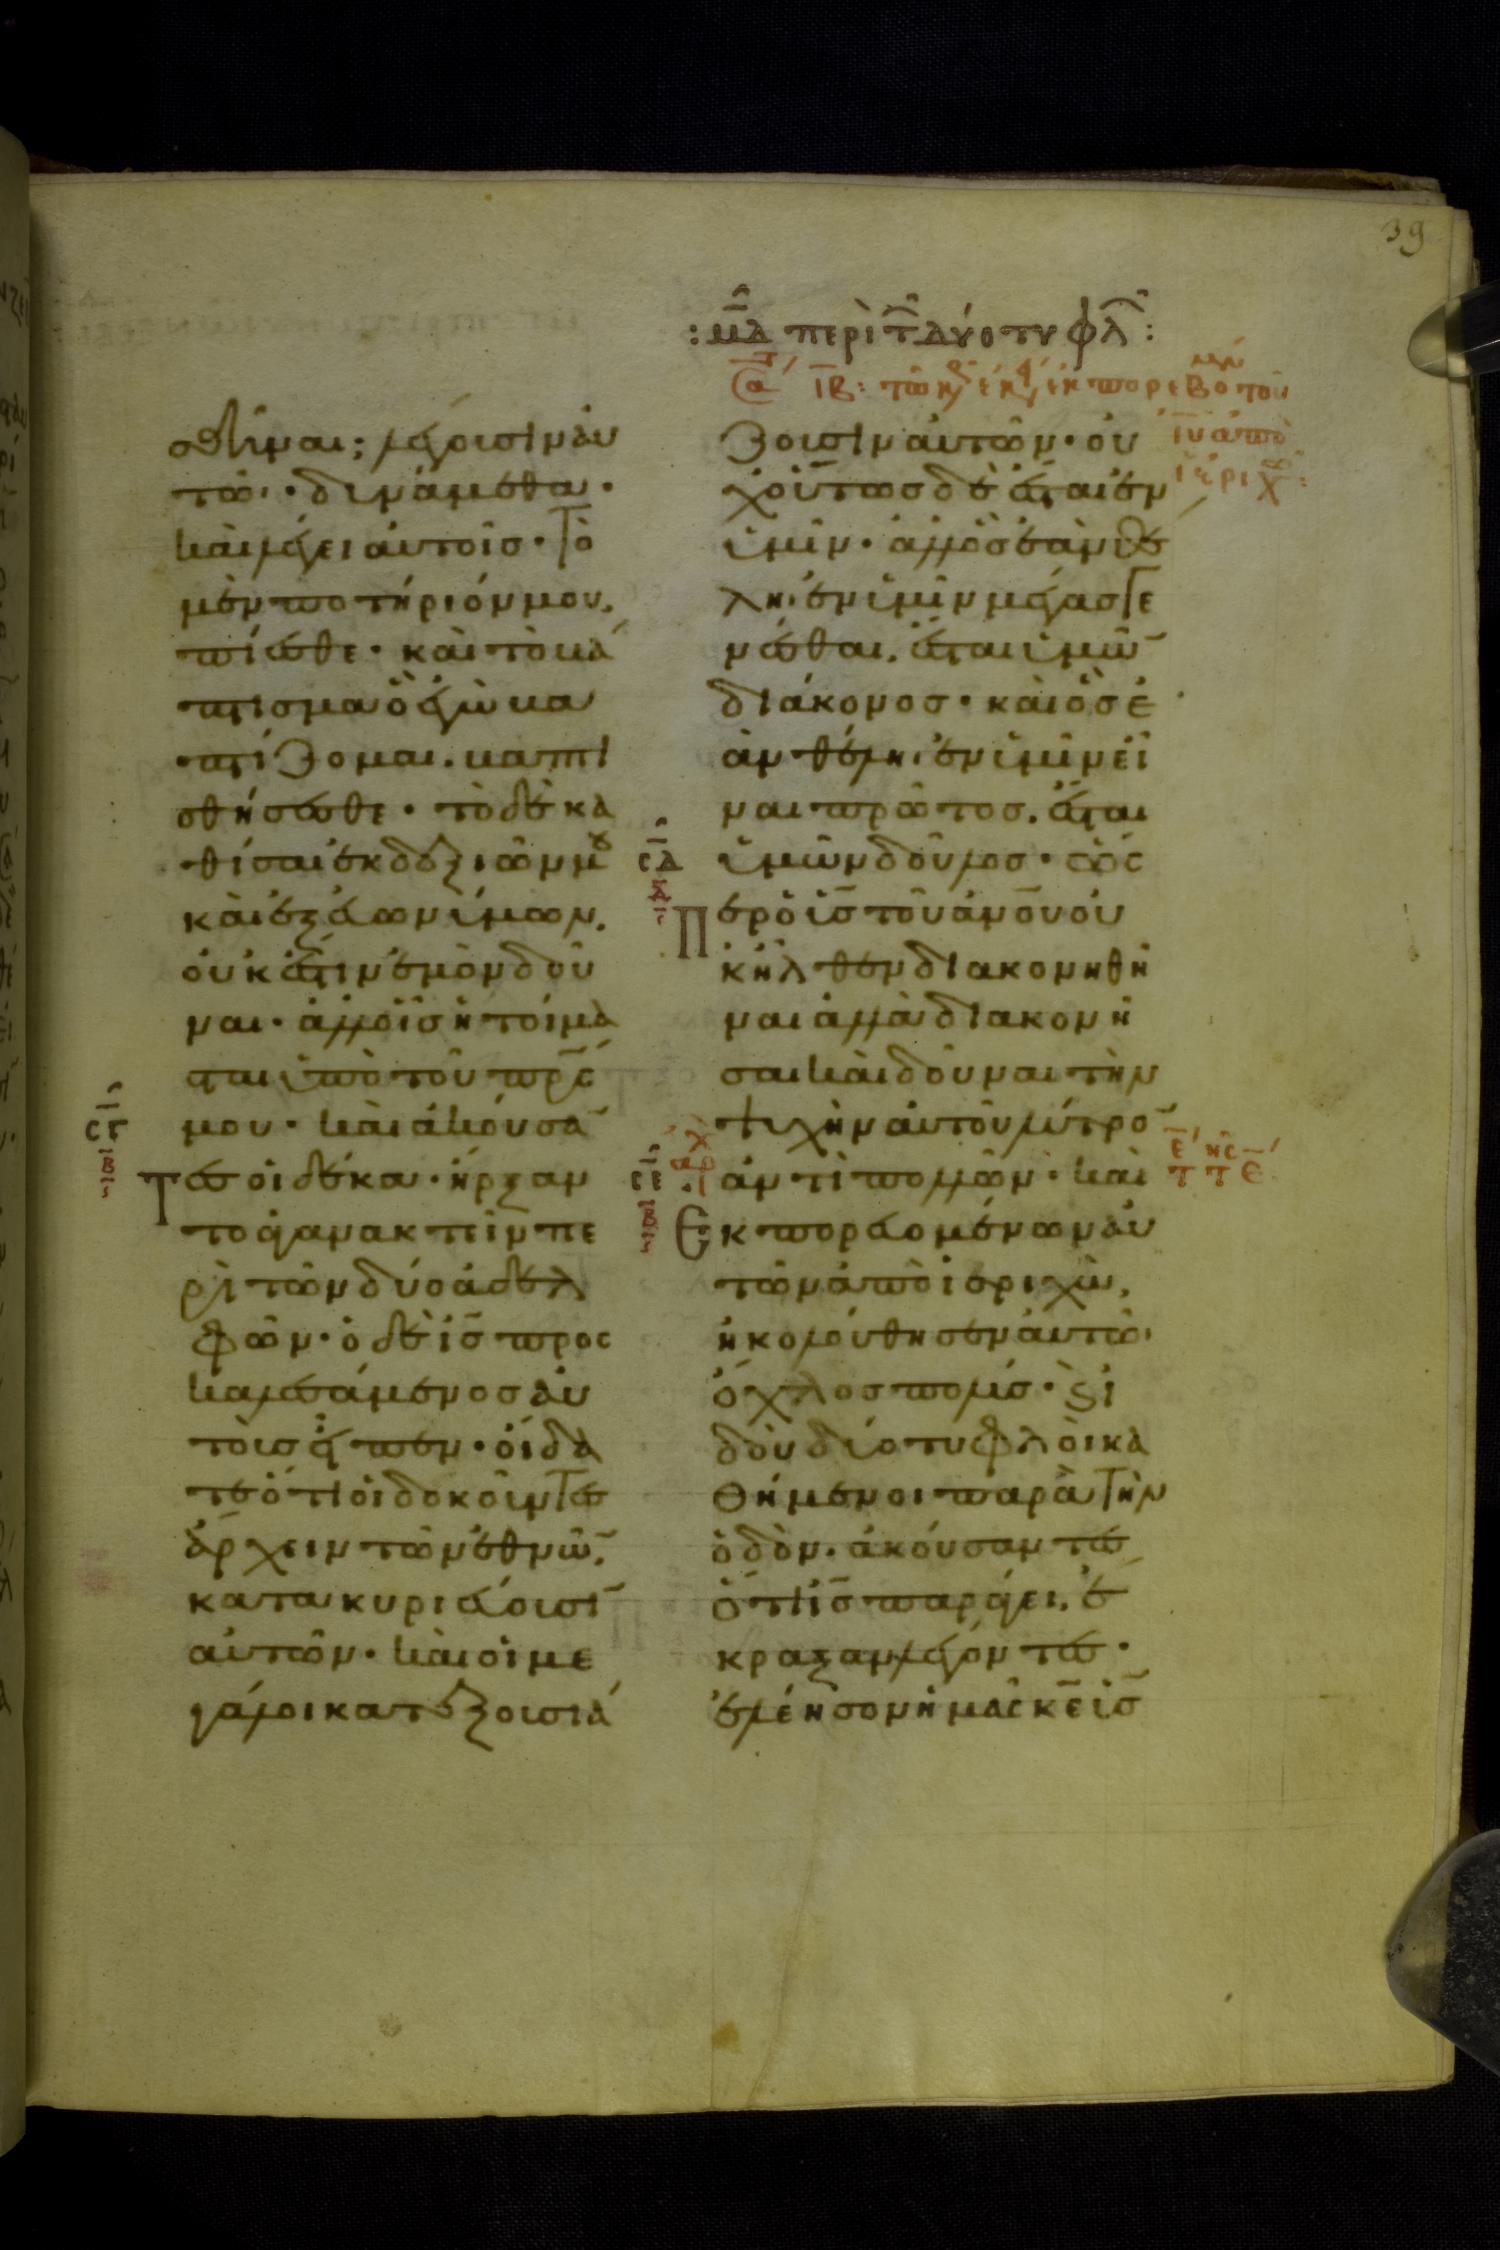 39
: μ̅δ̅ περὶ τ̅ δύο τυφλ̅ :
σθῆναι; λέγουσιν αὐ
τῶ· δυνάμεθα·
καὶ λέγει αὐτοῖσ· Τὸ
μὲν ποτήριόν μου,
πίεσθε· καὶ τὸ βά
πτισμα ὃ ἐγὼ βα
πτίζομαι. βαπτι
σθήσεσθε· τὸ δὲ κα
θίσαι ἐκ δεξιῶν μου
καὶ ἐξ εὐωνύμων,
οὐκ ἔστιν ἐμὸν δοῦ
ναι· ἀλλ' οἷσ ἡτοίμα
σται ὑπὸ τοῦ πρ̅σ
μου· καὶ ἀκούσαν
σ̅γ̅
β̅
Τεσ οἱ δέκα· ἤρξαν
το ἀγανακτεῖν πε
ρὶ τῶν δύο ἀδελ
φῶν· ὁ δὲ ι̅σ̅ προσ
καλεσάμενοσ αὐ
τοὺσ εἶπεν· οἴδα
τε ὅτι οἱ δοκοῦντεσ
ἄρχειν τῶν ἐθνῶ̅,
κατακυριεύουσι̅
αὐτῶν· καὶ οἱ με
γάλοι κατεξουσιά
ζουσιν αὐτῶν· οὐ
χ οὕτωσ δὲ ἔσται ἐν
ὑμῖν· ἀλλ' ὃσ ἐὰν θέ
λη ἐν ὑμῖν μέγασ γε
νέσθαι, ἔσται ὑμῶ̅
διάκονοσ· καὶ ὃσ ἐ
ὰν θέλη ἐν ὑμῖν εἶ
ναι πρῶτοσ, ἔσται
ὑμῶν δοῦλοσ· ὥσ
σ̅δ̅
δ̅
Περ ὁ υ̅σ̅ τοῦ ἀν̅ου οὐ
κ ἦλθεν διακονηθῆ
ναι ἀλλὰ διακονῆ
σαι καὶ δοῦναι τὴν
ψυχὴν αὐτοῦ λύτρο̅
ἀντὶ πολλῶν· καὶ
σ̅ε̅
β̅
Ἐκπορευομένων αὐ
τῶν ἀπὸ ἱεριχὼ,
ἠκολούθησεν αὐτῶ
ὄχλοσ πολύσ· καὶ ἰ
δοὺ δύο τυφλοὶ κα
θήμενοι παρὰ τὴν
ὁδὸν· ἀκούσαντεσ
ὅτι ι̅σ̅ παράγει, ἔ
κραξαν λέγοντεσ·
ἐλέησον ἡμᾶσ κ̅ε̅ υ̅σ̅